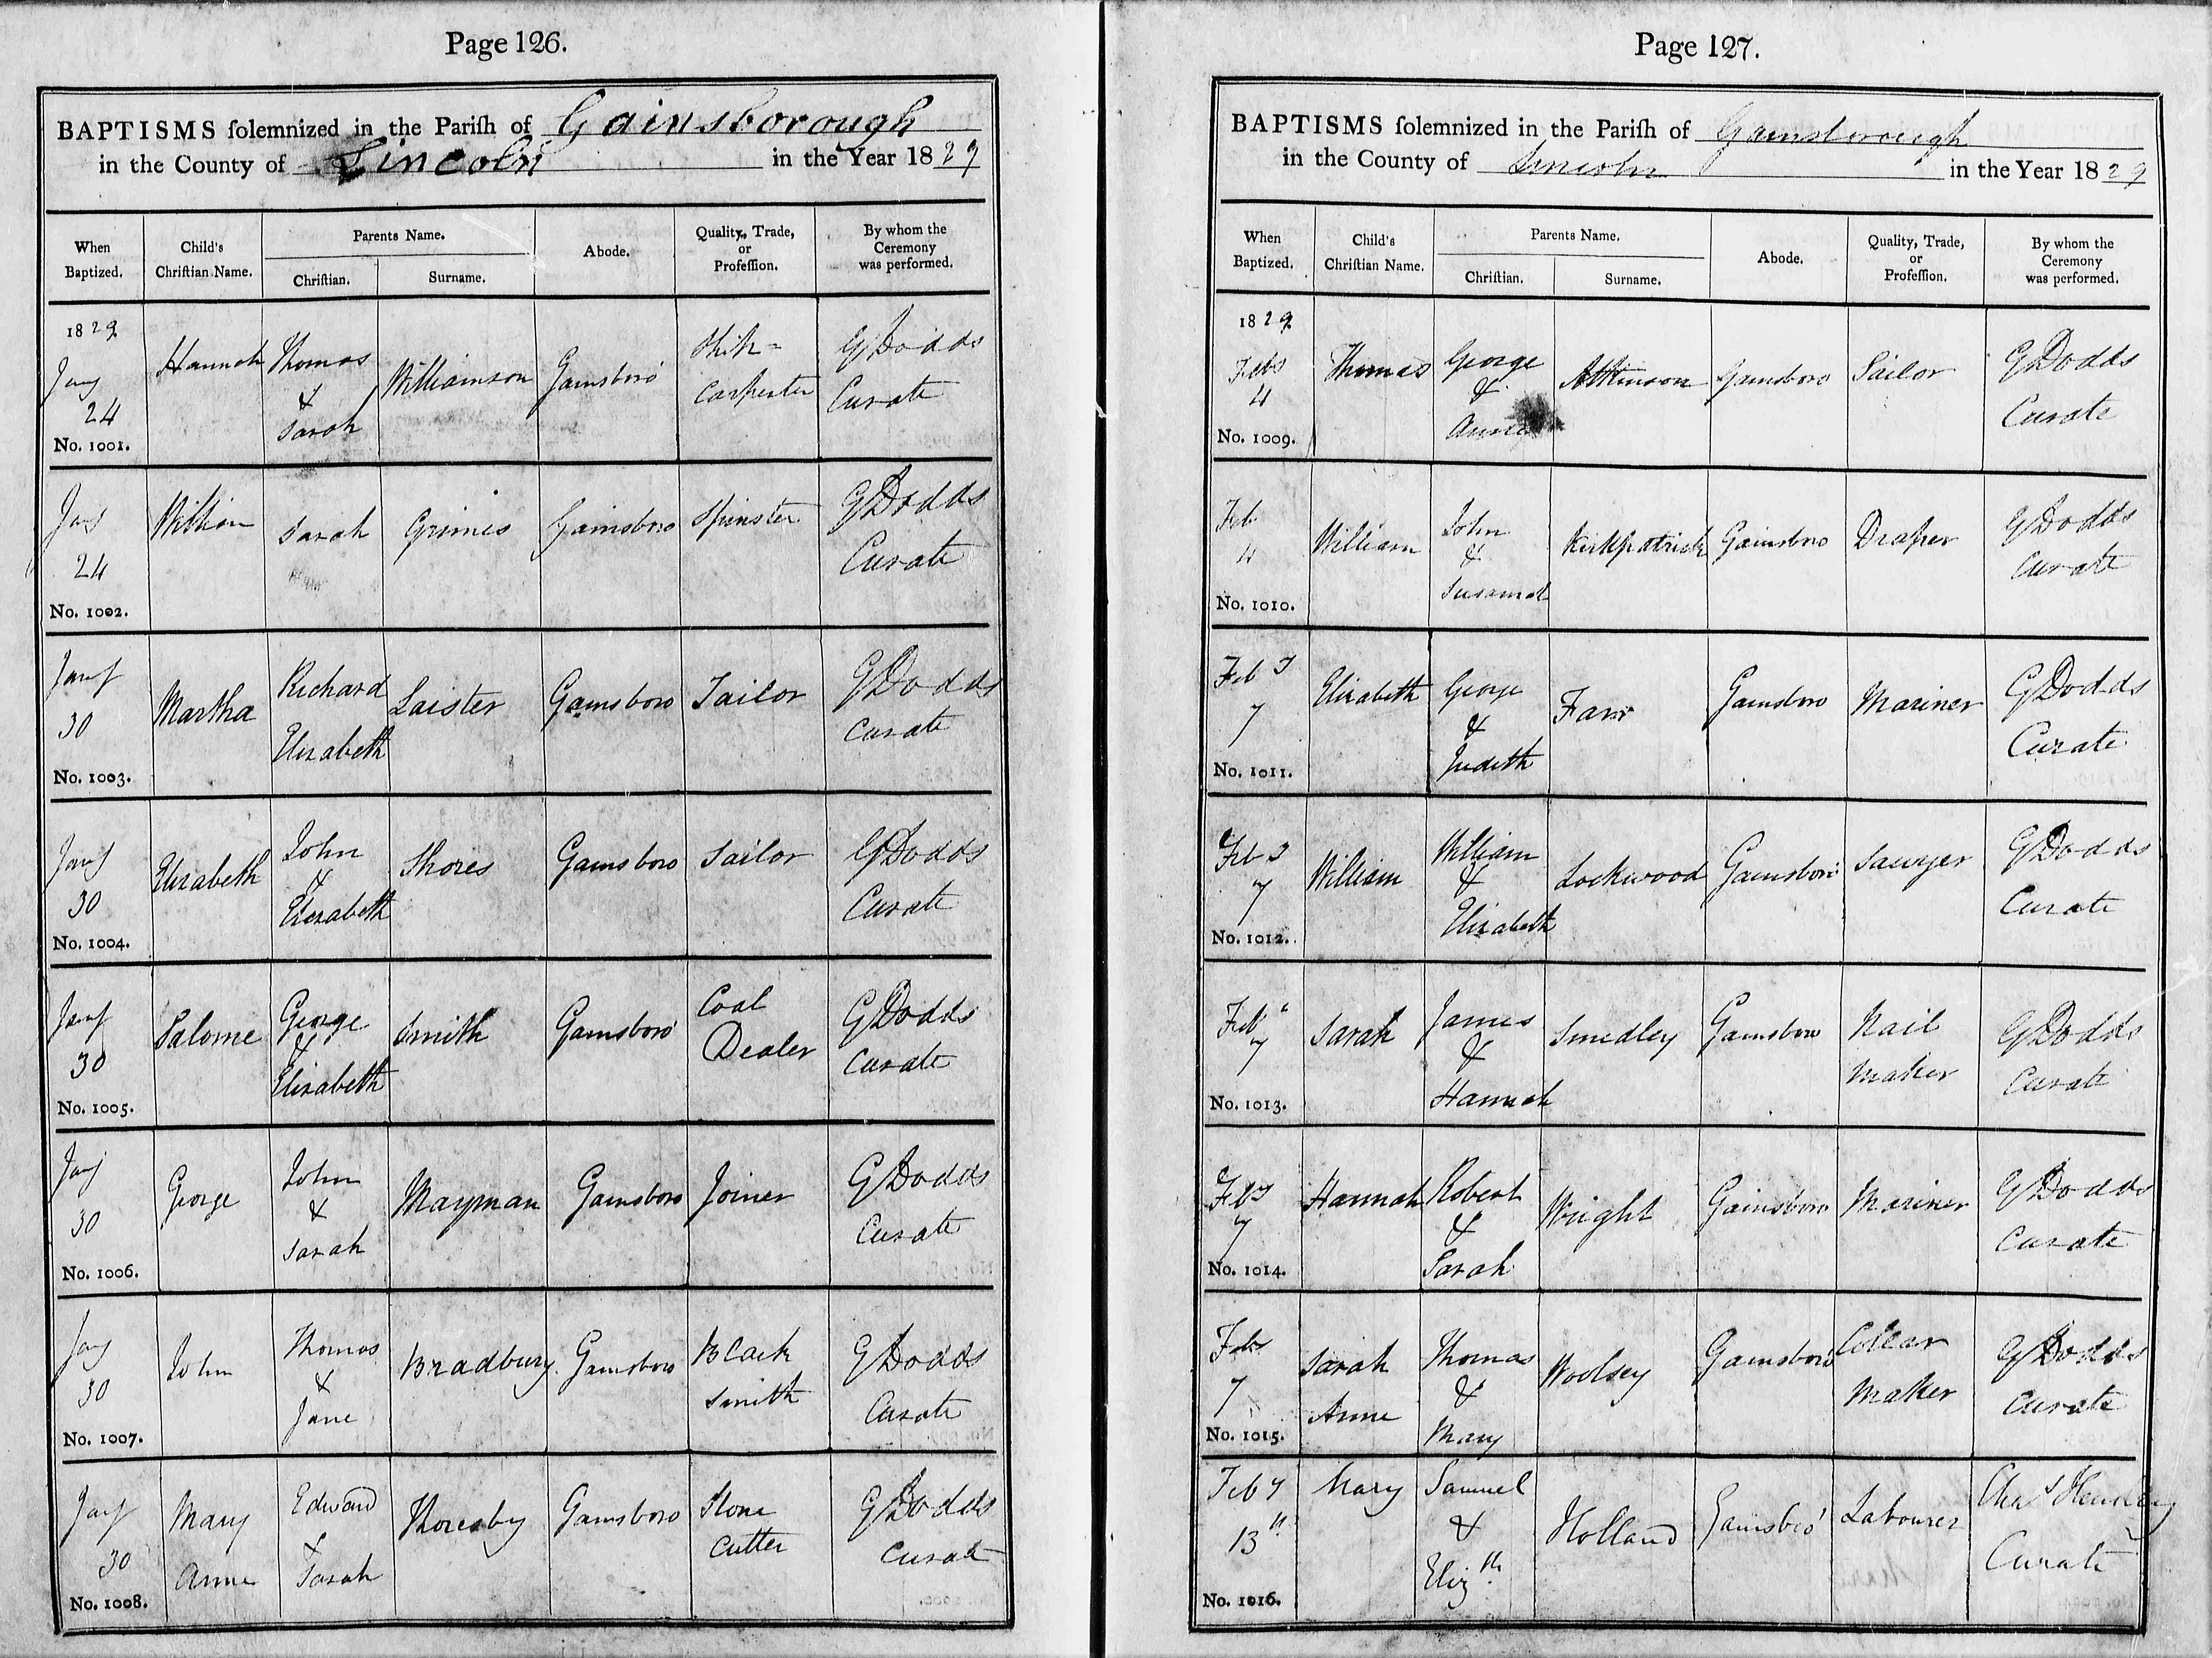 Page 126.
BAPTISMS ſolemnized in the Pariſh of Gainsborough
in the County of Lincoln in the Year 1829
When Baptized.
Child's Chriſtian Name.
Parents Name.
Chriſtian.
Surname.
Abode.
Quality, Trade, or Profeſſion.
By whom the Ceremony was performed.
1829
Jany 24 Hannah Thomas & Sarah Williamson Gainsboro Ship= Carpenter G Dodds Curate
No. 1001.
Jany 24 William Sarah Grimes Gainsboro Spinster G Dodds Curate
No. 1002.
Jany 30 Martha Richard Elizabeth Laister Gainsboro Tailor G Dodds Curate
No. 1003.
Jany 30 Elizabeth John & Elizabeth Shores Gainsboro Sailor G Dodds Curate
No. 1004.
Jany 30 Salome George & Elizabeth Smith Gainsboro Coal Dealer G Dodds Curate
No. 1005.
Jany 30 George John & Sarah Mayman Gainsboro Joiner G Dodds Curate
No. 1006.
Jany 30 John Thomas & Jane Bradbury Gainsboro Black smith G Dodds Curate
No. 1007.
Jany 30 Mary Anne Edward & Sarah Thoresby Gainsboro Stone Cutter G Dodds Curate
No. 1008.
Page 127.
BAPTISMS ſolemnized in the Pariſh of Gainsborough
in the County of Lincoln in the Year 1829
When Baptized.
Child's Chriſtian Name.
Parents Name.
Chriſtian.
Surname.
Abode.
Quality, Trade, or Profeſſion.
By whom the Ceremony was performed.
1829
Feby 4 Thomas George & Atkinson Gainsboro Sailor G Dodds Curate
No. 1009.
Feb 4 William John & Susannah Kirkpatrick Gainsboro Draper G Dodds Curate
No. 1010.
Feby 7 Elizabeth George & Judith Farr Gainsboro Mariner G Dodds Curate
No. 1011.
Feby 7 William William & Elizabeth Lockwood Gainsboro Sawyer G Dodds Curate
No. 1012.
Feby 7 Sarah James & Hannah Smedley Gainsboro Nail Maker G Dodds Curate
No. 1013.
Feby 7 Hannah Robert & Sarah Wright Gainsboro Mariner G Dodds Curate
No. 1014.
Feby 7 Sarah Anne Thomas & Mary Woolsey Gainsboro Collar Maker G Dodds Curate
No. 1015.
Feby 13th Mary Samuel & Elizth Holland Gainsbro' Labourer Chas Curate
No. 1016.